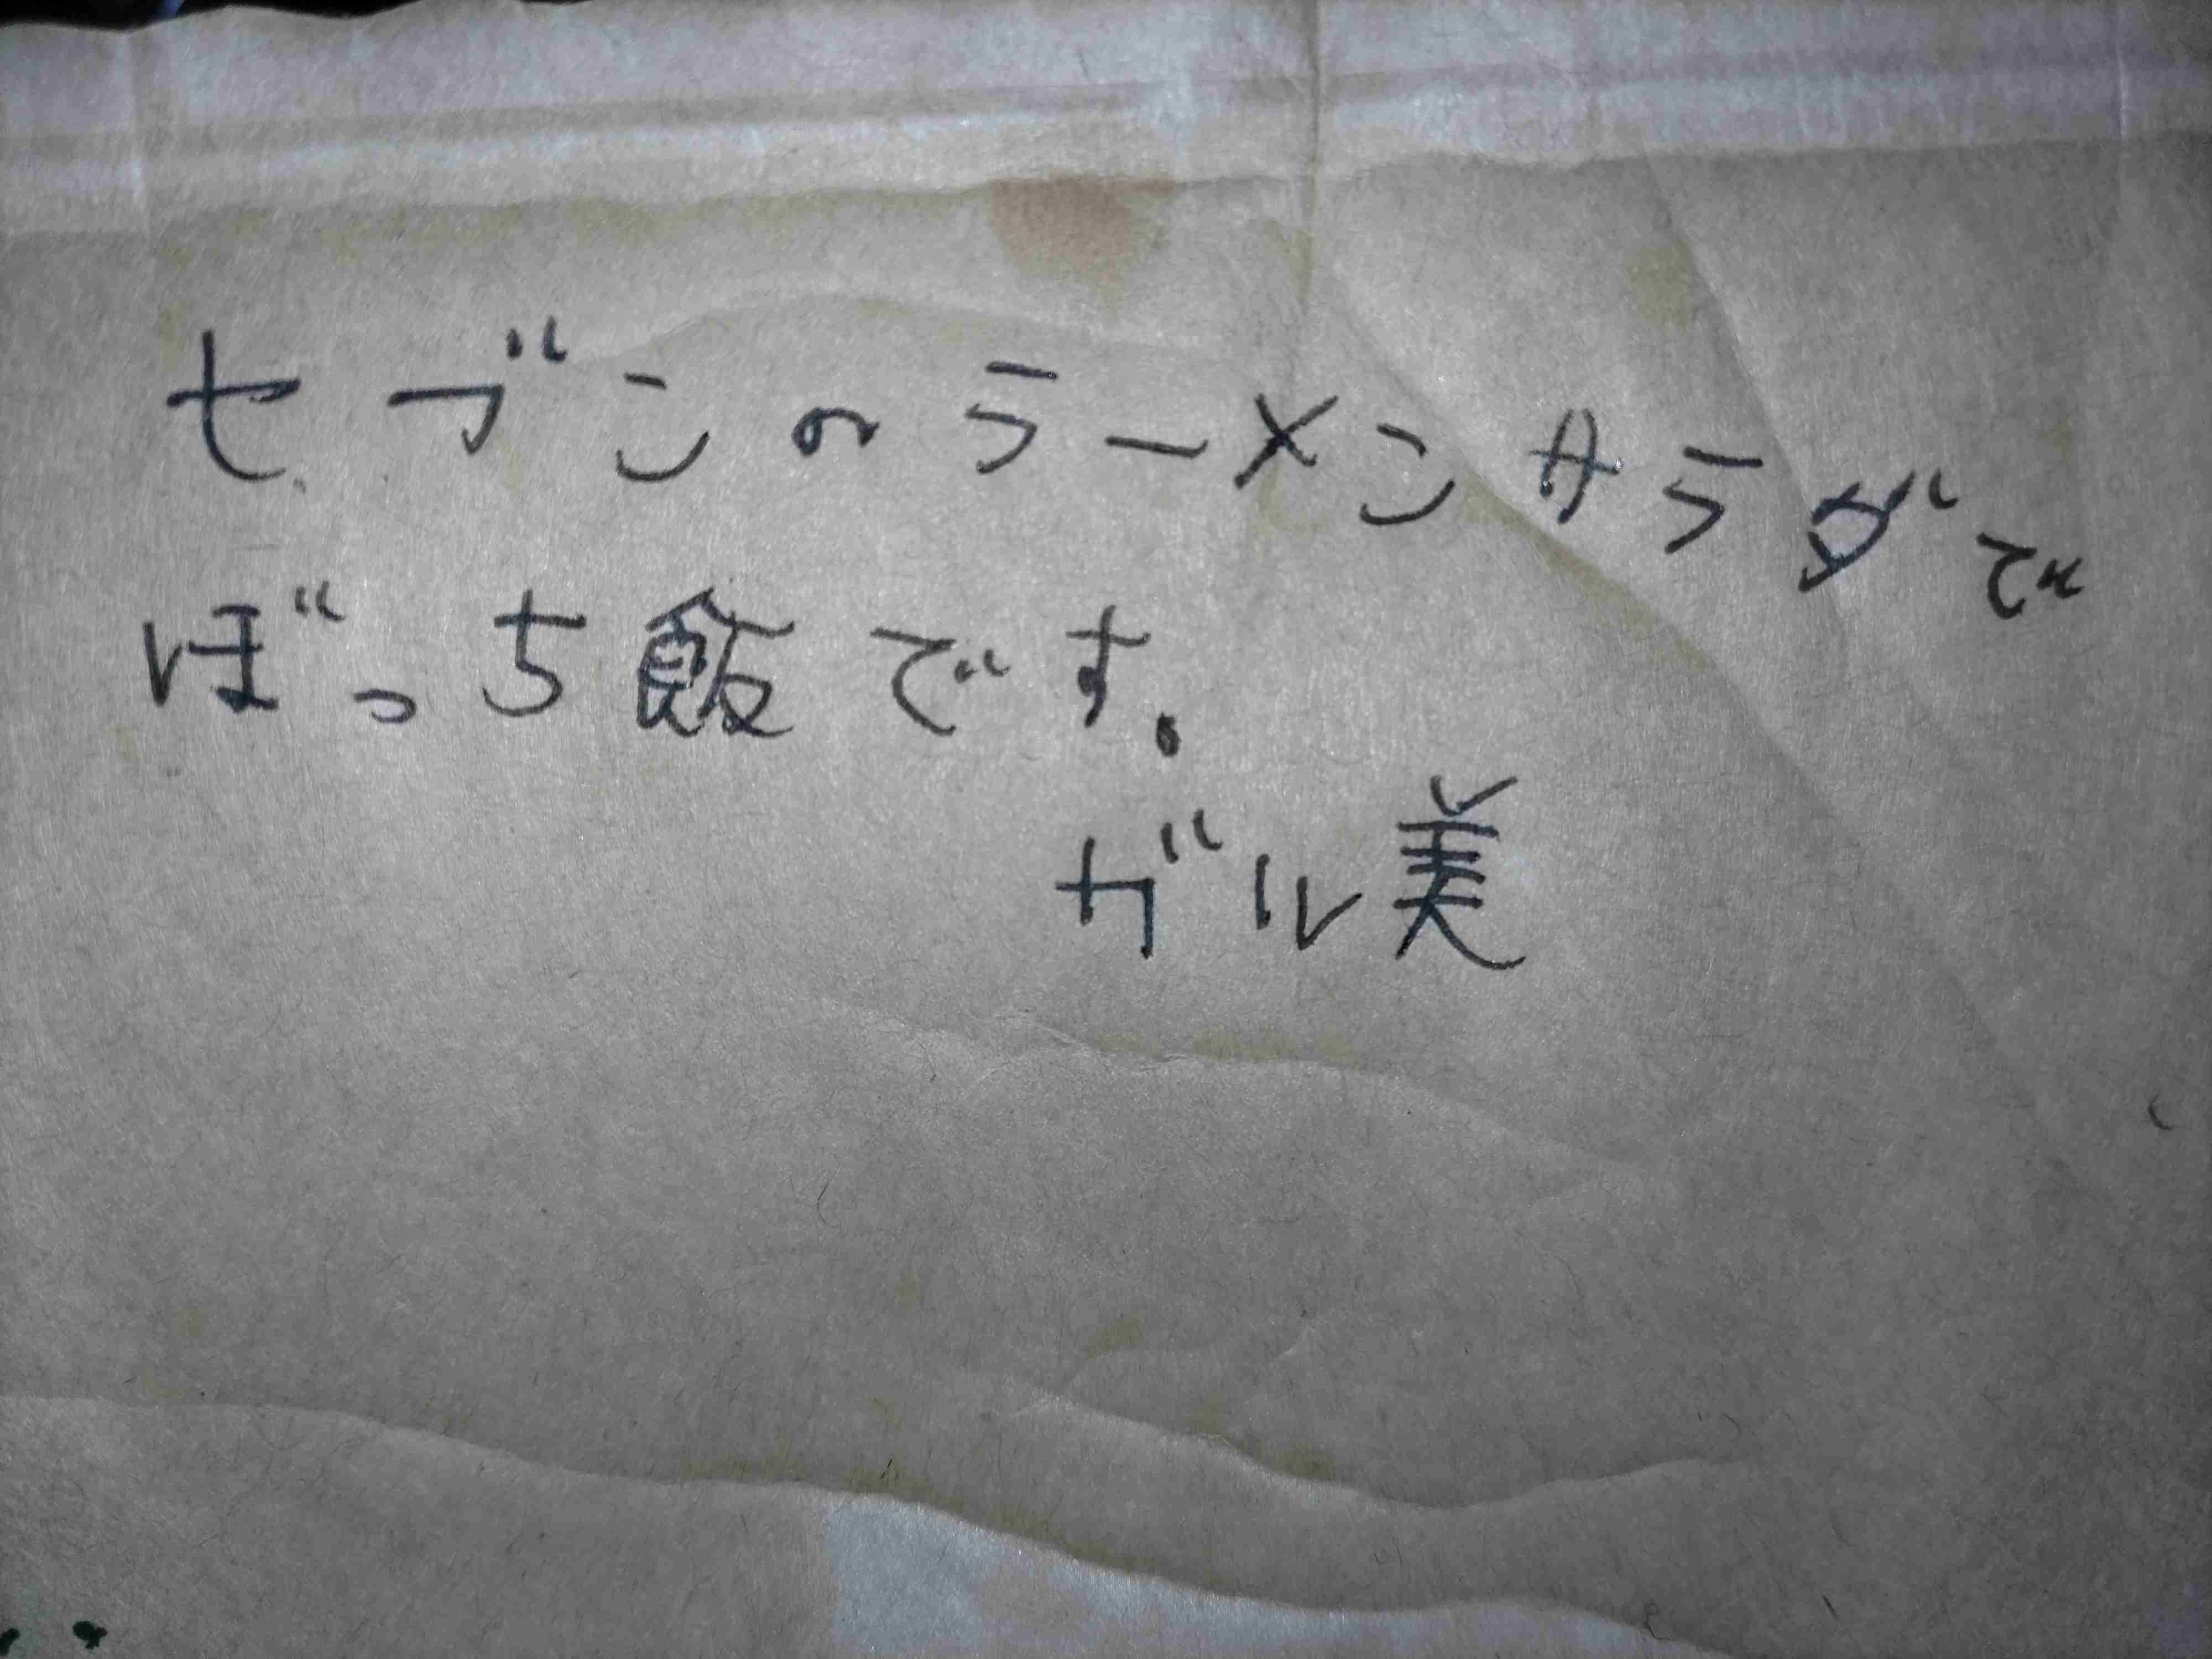 セブンのラーメンサラダで
ぼっち飯です.
ガル美